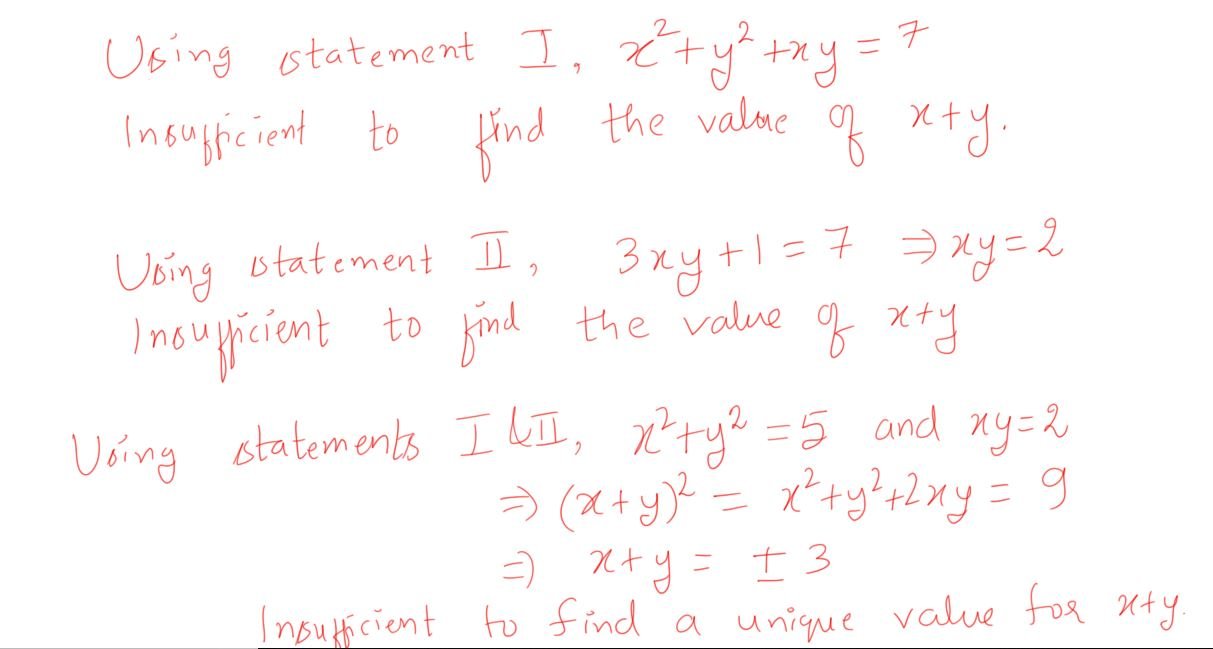 Using statement I, x²+y²+xy = 7
Insufficient to find the value of x+y.
Using statement II, 3xy+1 = 7 ⇒ xy = 2
Insufficient to find the value of x+y
Using statements I & II, x²+y² = 5 and xy=2
⇒ (x+y)² = x²+y²+2xy = 9
⇒ x+y = ± 3
Insufficient to find a unique value for x+y.